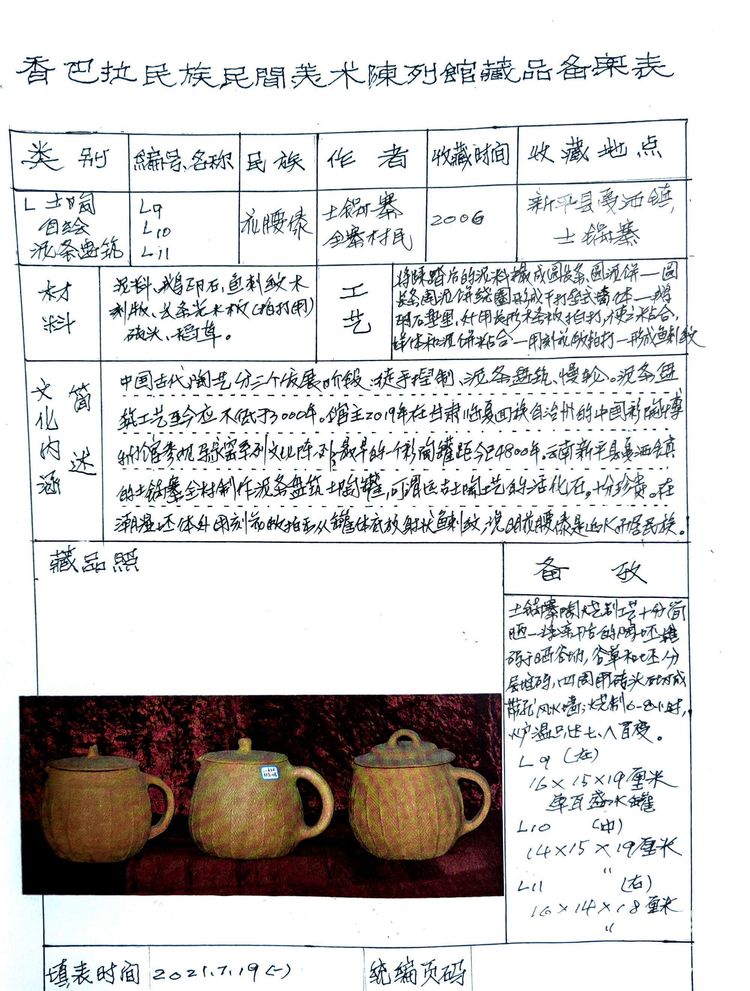 香巴拉民族民间美术陳列館藏品备案表
类别 编号、名称 民族 作者 收藏时间 收藏地点
L 土陶
自绘
泥条盘筑
L9
L10
L11
花腰傣
土锅寨
全寨村民
2006
新平县戛洒镇
土锅寨
材料
泥料、鹅卵石、鱼刺纹木
刻版、长条光木板(拍打用)
砖头、稻草。
工艺
将踩踏后的泥料搓成圆长条、圆泥饼一圆
文化内涵简述
中国古代陶艺分三个发展阶段、徒手捏制、泥条盘筑、慢轮。泥条盘
筑工艺至今应不低于3000年。馆主2019年在甘肃临夏回族自治州的中国彩陶博
物馆参观马家窑系列文化陈列,最早的一个彩陶罐距今4800年。云南新平县戛洒镇
的土锅寨全村制作泥条盘筑土陶罐,可谓远古陶艺的活化石。十分珍贵。在
潮湿坯体外用刻花板拍至从罐体底放射状鱼刺纹,说明花腰傣是近水而居民族。
藏品照
备考
土锅寨陶烧制工艺十分简
陋一将凉干后的陶坯堆
码于晒谷场,谷草和坯分
层堆码,四周用砖头砌成
带孔风火墙;烧制6-8小时,
炉温只达七、八百度。
L9 (左)
16×15×19厘米
单瓦盛水罐
L10 (中)
14×15×19厘米
〃
L11 (右)
16×14×18厘米
〃
填表时间 2021.7.19(一) 统编页码